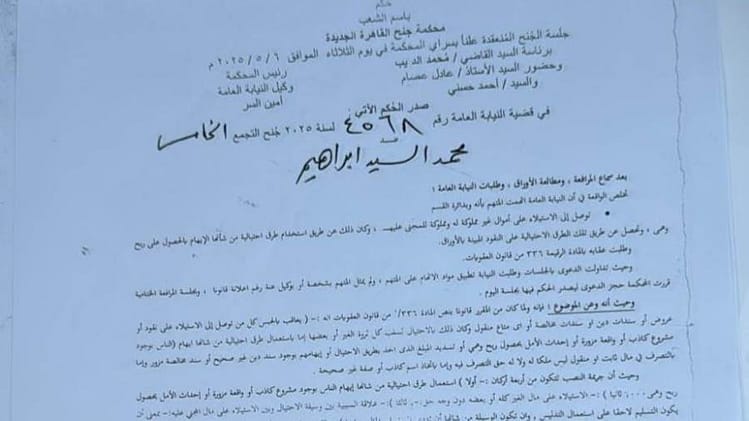 حكم
باسم الشعب
محكمة جنح القاهرة الجديدة
جلسة الجنح المنعقدة علناً بسراي المحكمة في يوم الثلاثاء الموافق ٢٠٢٥/٥/٦ م
برئاسة السيد القاضي / محمد الديب رئيس المحكمة
وحضور السيد الأستاذ / عادل عصام وكيل النيابة العامة
والسيد / أحمد حسني أمين السر
صدر الحكم الآتي
في قضية النيابة العامة رقم ٤٥٦٨ لسنة ٢٠٢٥ جنح التجمع الخامس
ضد
محمد السيد ابراهيم
بعد سماع المرافعة ، ومطالعة الأوراق ، وطلبات النيابة العامة :
تخلص الواقعة في أن النيابة العامة اتهمت المتهم بأنه وبدائرة القسم
• توصل إلى الاستيلاء على أموال غير مملوكة له ومملوكة للمجنى عليهـ ، وكان ذلك عن طريق استخدام طرق احتيالية من شأنها الإيهام بالحصول على ربح
وهمى ، وتحصل عن طريق تلك الطرق الاحتيالية على النقود المبينة بالأوراق.
وطلبت عقابه بالمادة الرقيمة ٣٣٦ من قانون العقوبات.
وحيث تداولت الدعوى بالجلسات وطلبت النيابة تطبيق مواد الاتهام على المتهم ، ولم يمثل المتهم بشخصة أو بوكيل عنة رغم اعلانة قانونا ، وبجلسة المرافعة الختامية
قررت المحكمة حجز الدعوى ليصدر الحكم فيها بجلسة اليوم .
وحيث أنه وعن الموضوع : فلما كان من المقرر قانونا بنص المادة ١/٣٣٦ من قانون العقوبات انه :- ( يعاقب بالحبس كل من توصل إلى الاستيلاء على نقود أو
عروض أو سندات دين أو سندات مخالصة أو اى متاع منقول وكان ذلك بالاحتيال لسلب كل ثروة الغير أو بعضها إما باستعمال طرق احتيالية من شأنها ايهام الناس بوجود
مشروع كاذب أو واقعة مزورة أو إحداث الأمل بحصول ربح وهمي أو تسديد المبلغ الذى اخذ بطريق الاحتيال أو إيهامهم بوجود سند دين غير صحيح أو سند مخالصة مزور وإما
بالتصرف في مال ثابت او منقول ليس ملكا له ولا له حق التصرف فيه وإما باتخاذ اسم كاذب أو صفة غير صحيحة .
وحيث أن جريمة النصب تتكون من أربعة أركان :- أولا ) استعمال طرق احتيالية من شأنها إيهام الناس بوجود مشروع كاذب أو واقعة مزورة أو إحداث الأمل بحصول
ربح وهمي .... ثانيا ) :- الاستيلاء على مال الغير كله أو بعضه دون وجه حق .- ثالثا ) :- علاقة السببية بين وسيلة الاحتيال وبين الاستيلاء على مال المجني عليه:- بمعنى أن
يكون التسليم لاحقا على استعمال التدليس ، وان تكون الوسيلة من شأنها